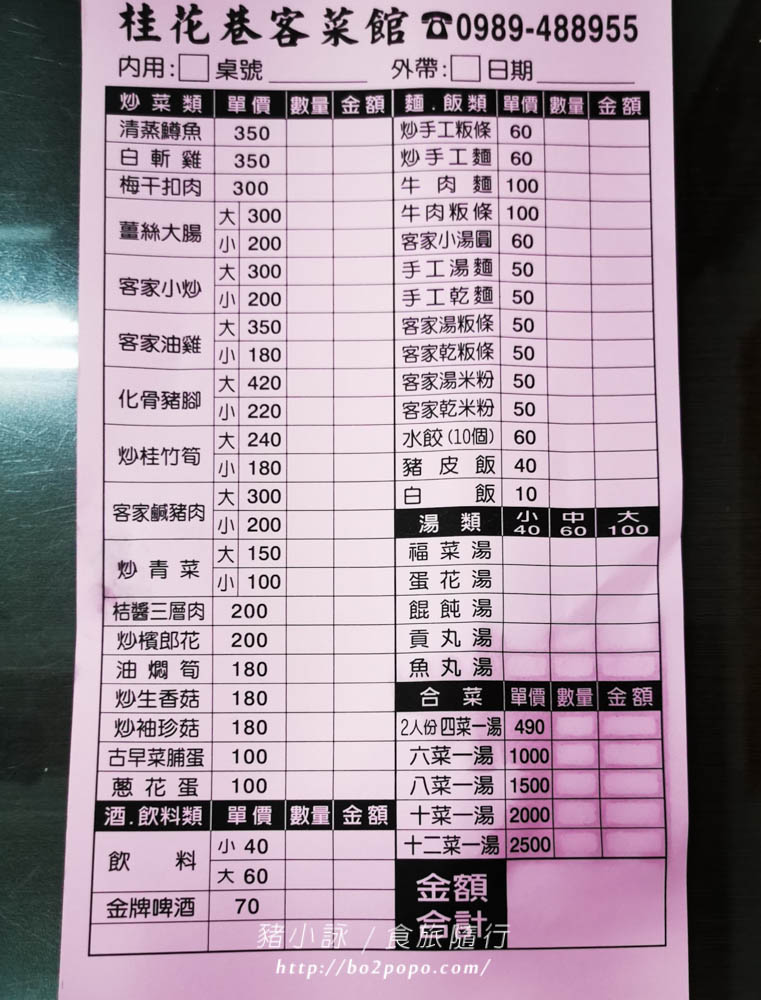 桂花巷客菜館☎0989-488955
內用:□桌號 外帶:□日期
炒菜類 單價 數量 金額
清蒸鱒魚 350
白斬雞 350
梅干扣肉 300
薑絲大腸 大 300
小 200
客家小炒 大 300
小 200
客家油雞 大 350
小 180
化骨豬腳 大 420
小 220
炒桂竹筍 大 240
小 180
客家鹹豬肉 大 300
小 200
炒青菜 大 150
小 100
桔醬三層肉 200
炒檳郎花 200
油燜筍 180
炒生香菇 180
炒袖珍菇 180
古早菜脯蛋 100
蔥花蛋 100
酒.飲料類 單價 數量 金額
飲料 小 40
大 60
金牌啤酒 70
麵.飯類 單價 數量 金額
炒手工粄條 60
炒手工麵 60
牛肉麵 100
牛肉粄條 100
客家小湯圓 60
手工湯麵 50
手工乾麵 50
客家湯粄條 50
客家乾粄條 50
客家湯米粉 50
客家乾米粉 50
水餃(10個) 60
豬皮飯 40
白飯 10
湯類 小40 中60 大100
福菜湯
蛋花湯
餛飩湯
貢丸湯
魚丸湯
合菜 單價 數量 金額
2人份四菜一湯 490
六菜一湯 1000
八菜一湯 1500
十菜一湯 2000
十二菜一湯 2500
金額
合計
豬小詠 / 食旅隨行
http://bo2popo.com/